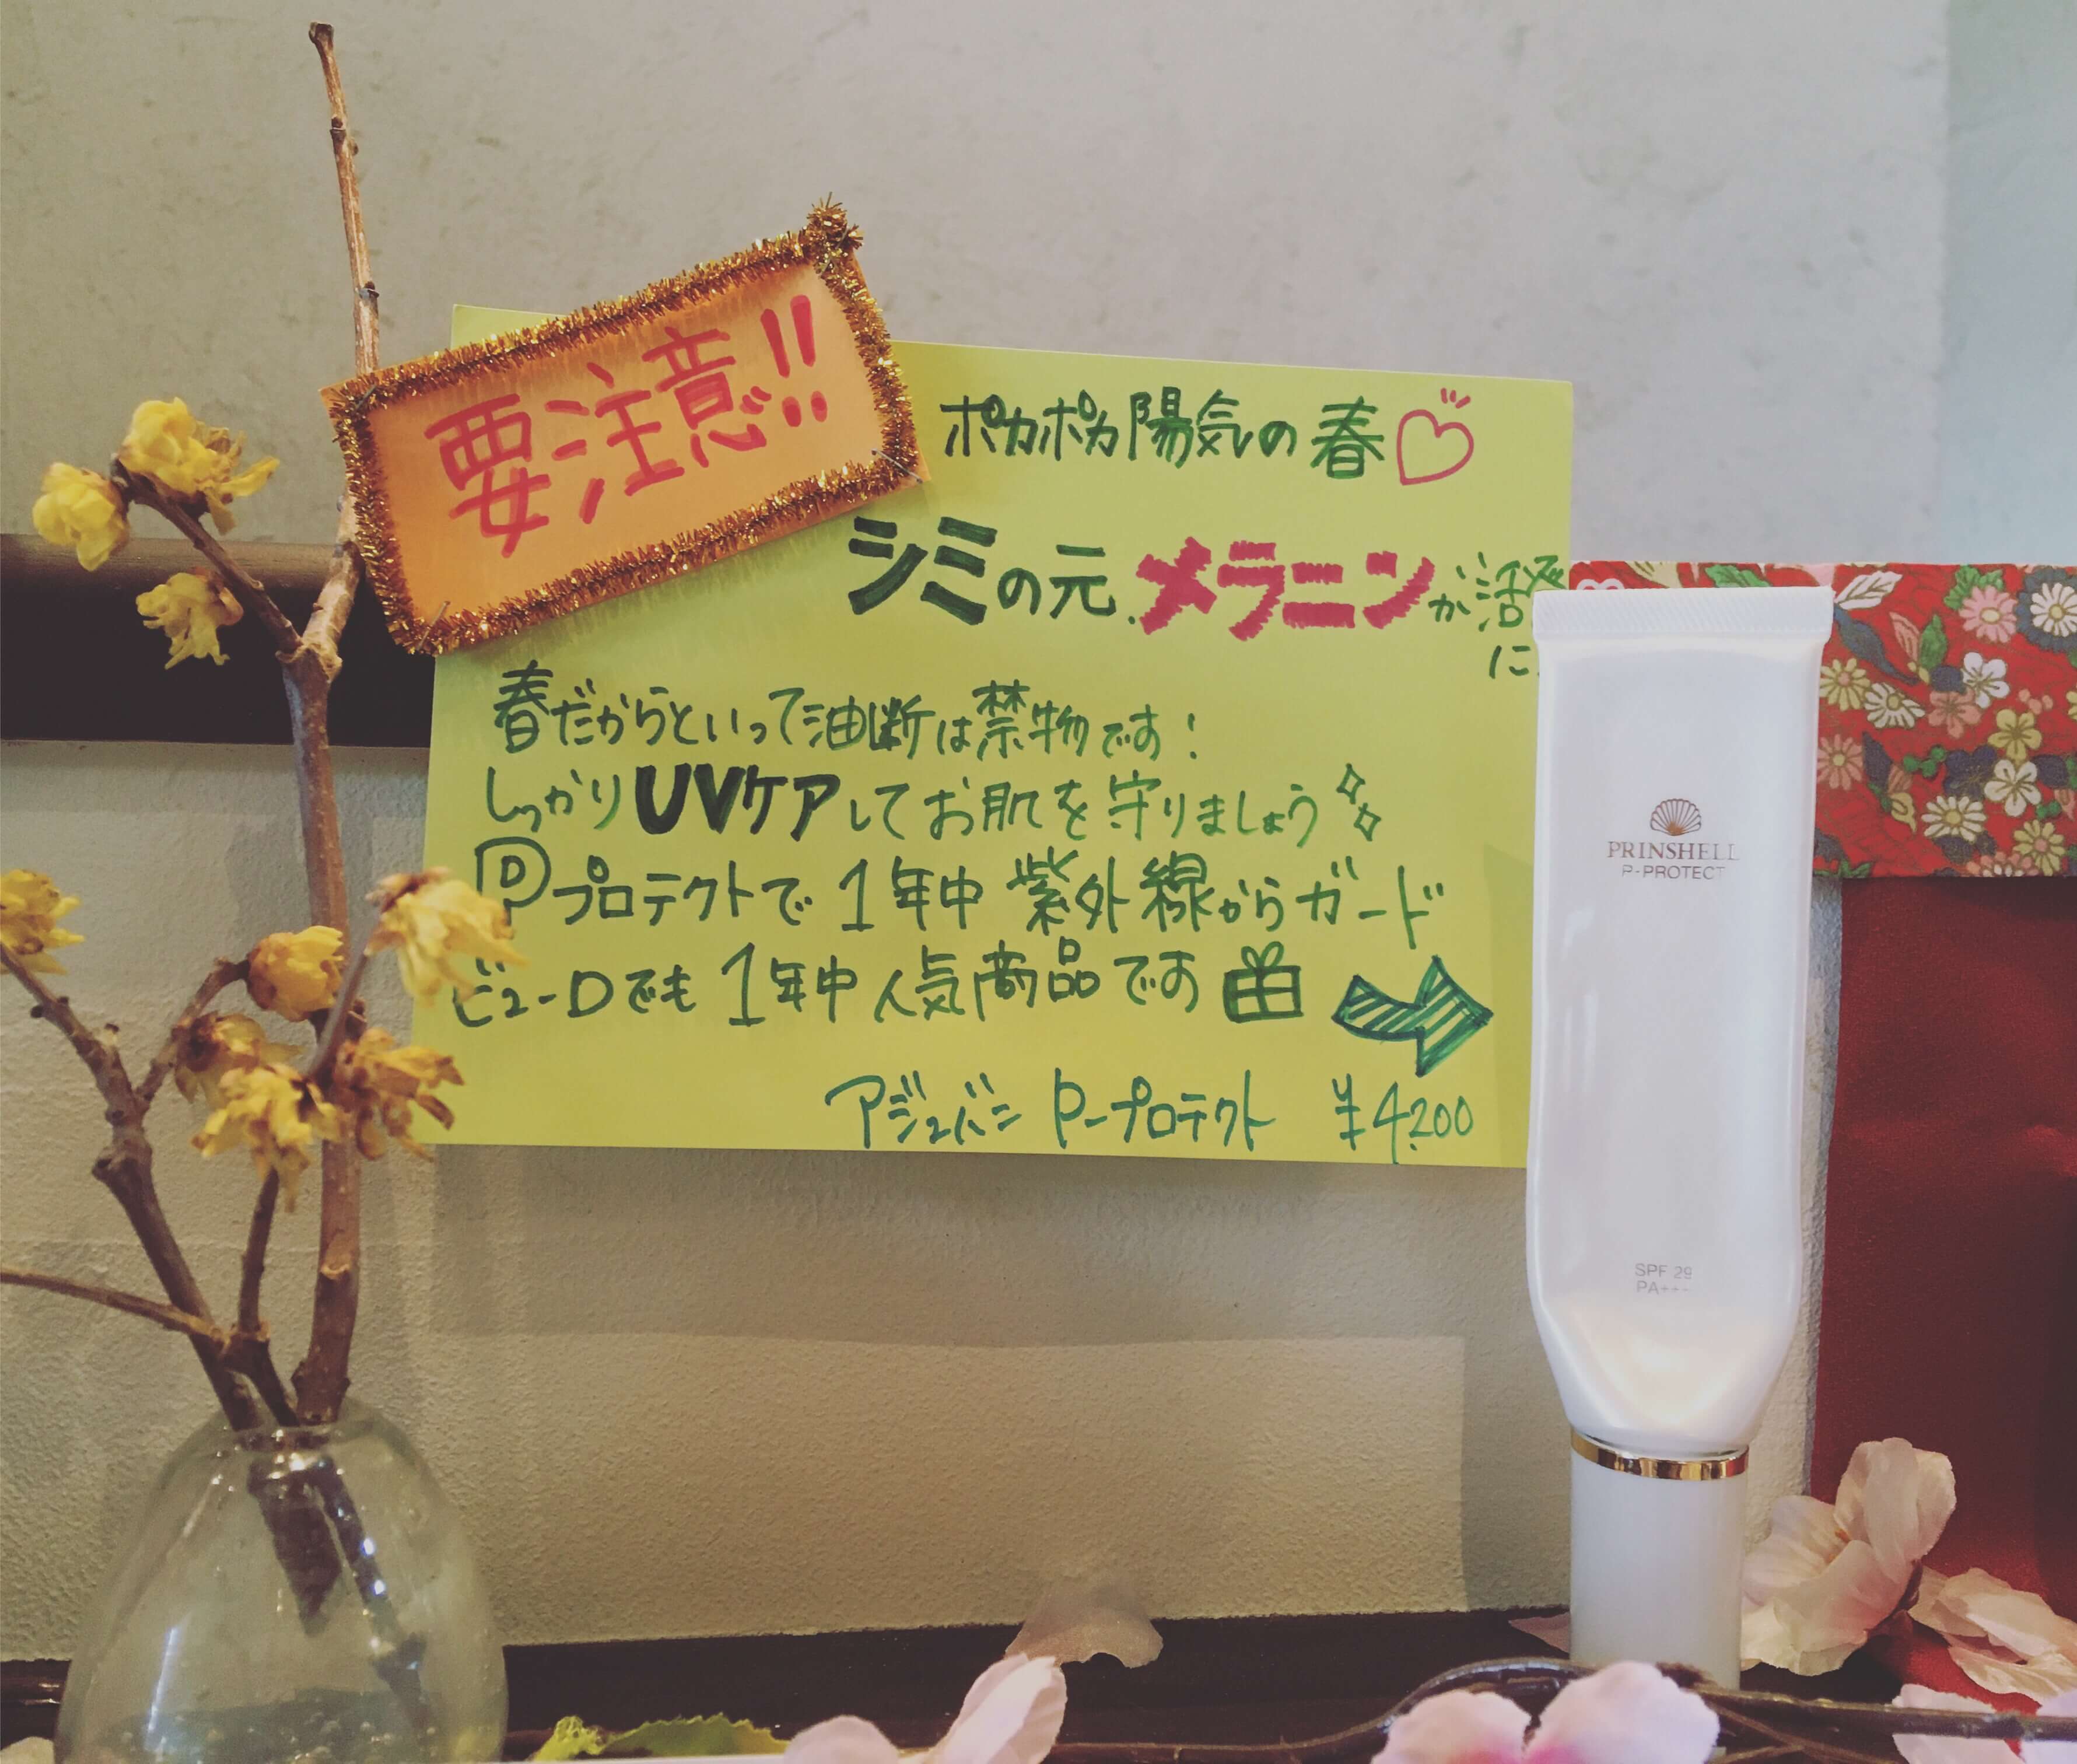 要注意!!
ポカポカ陽気の春
シミの元.メラニンが活発
に
春だからといって油断は禁物です!
しっかりUVケアしてお肌を守りましょう
Pプロテクトで1年中紫外線からガード
ビューDでも1年中人気商品です
アジュバン P-プロテクト ¥4,200
PRINSHELL
P-PROTECT
SPF 29
PA+++